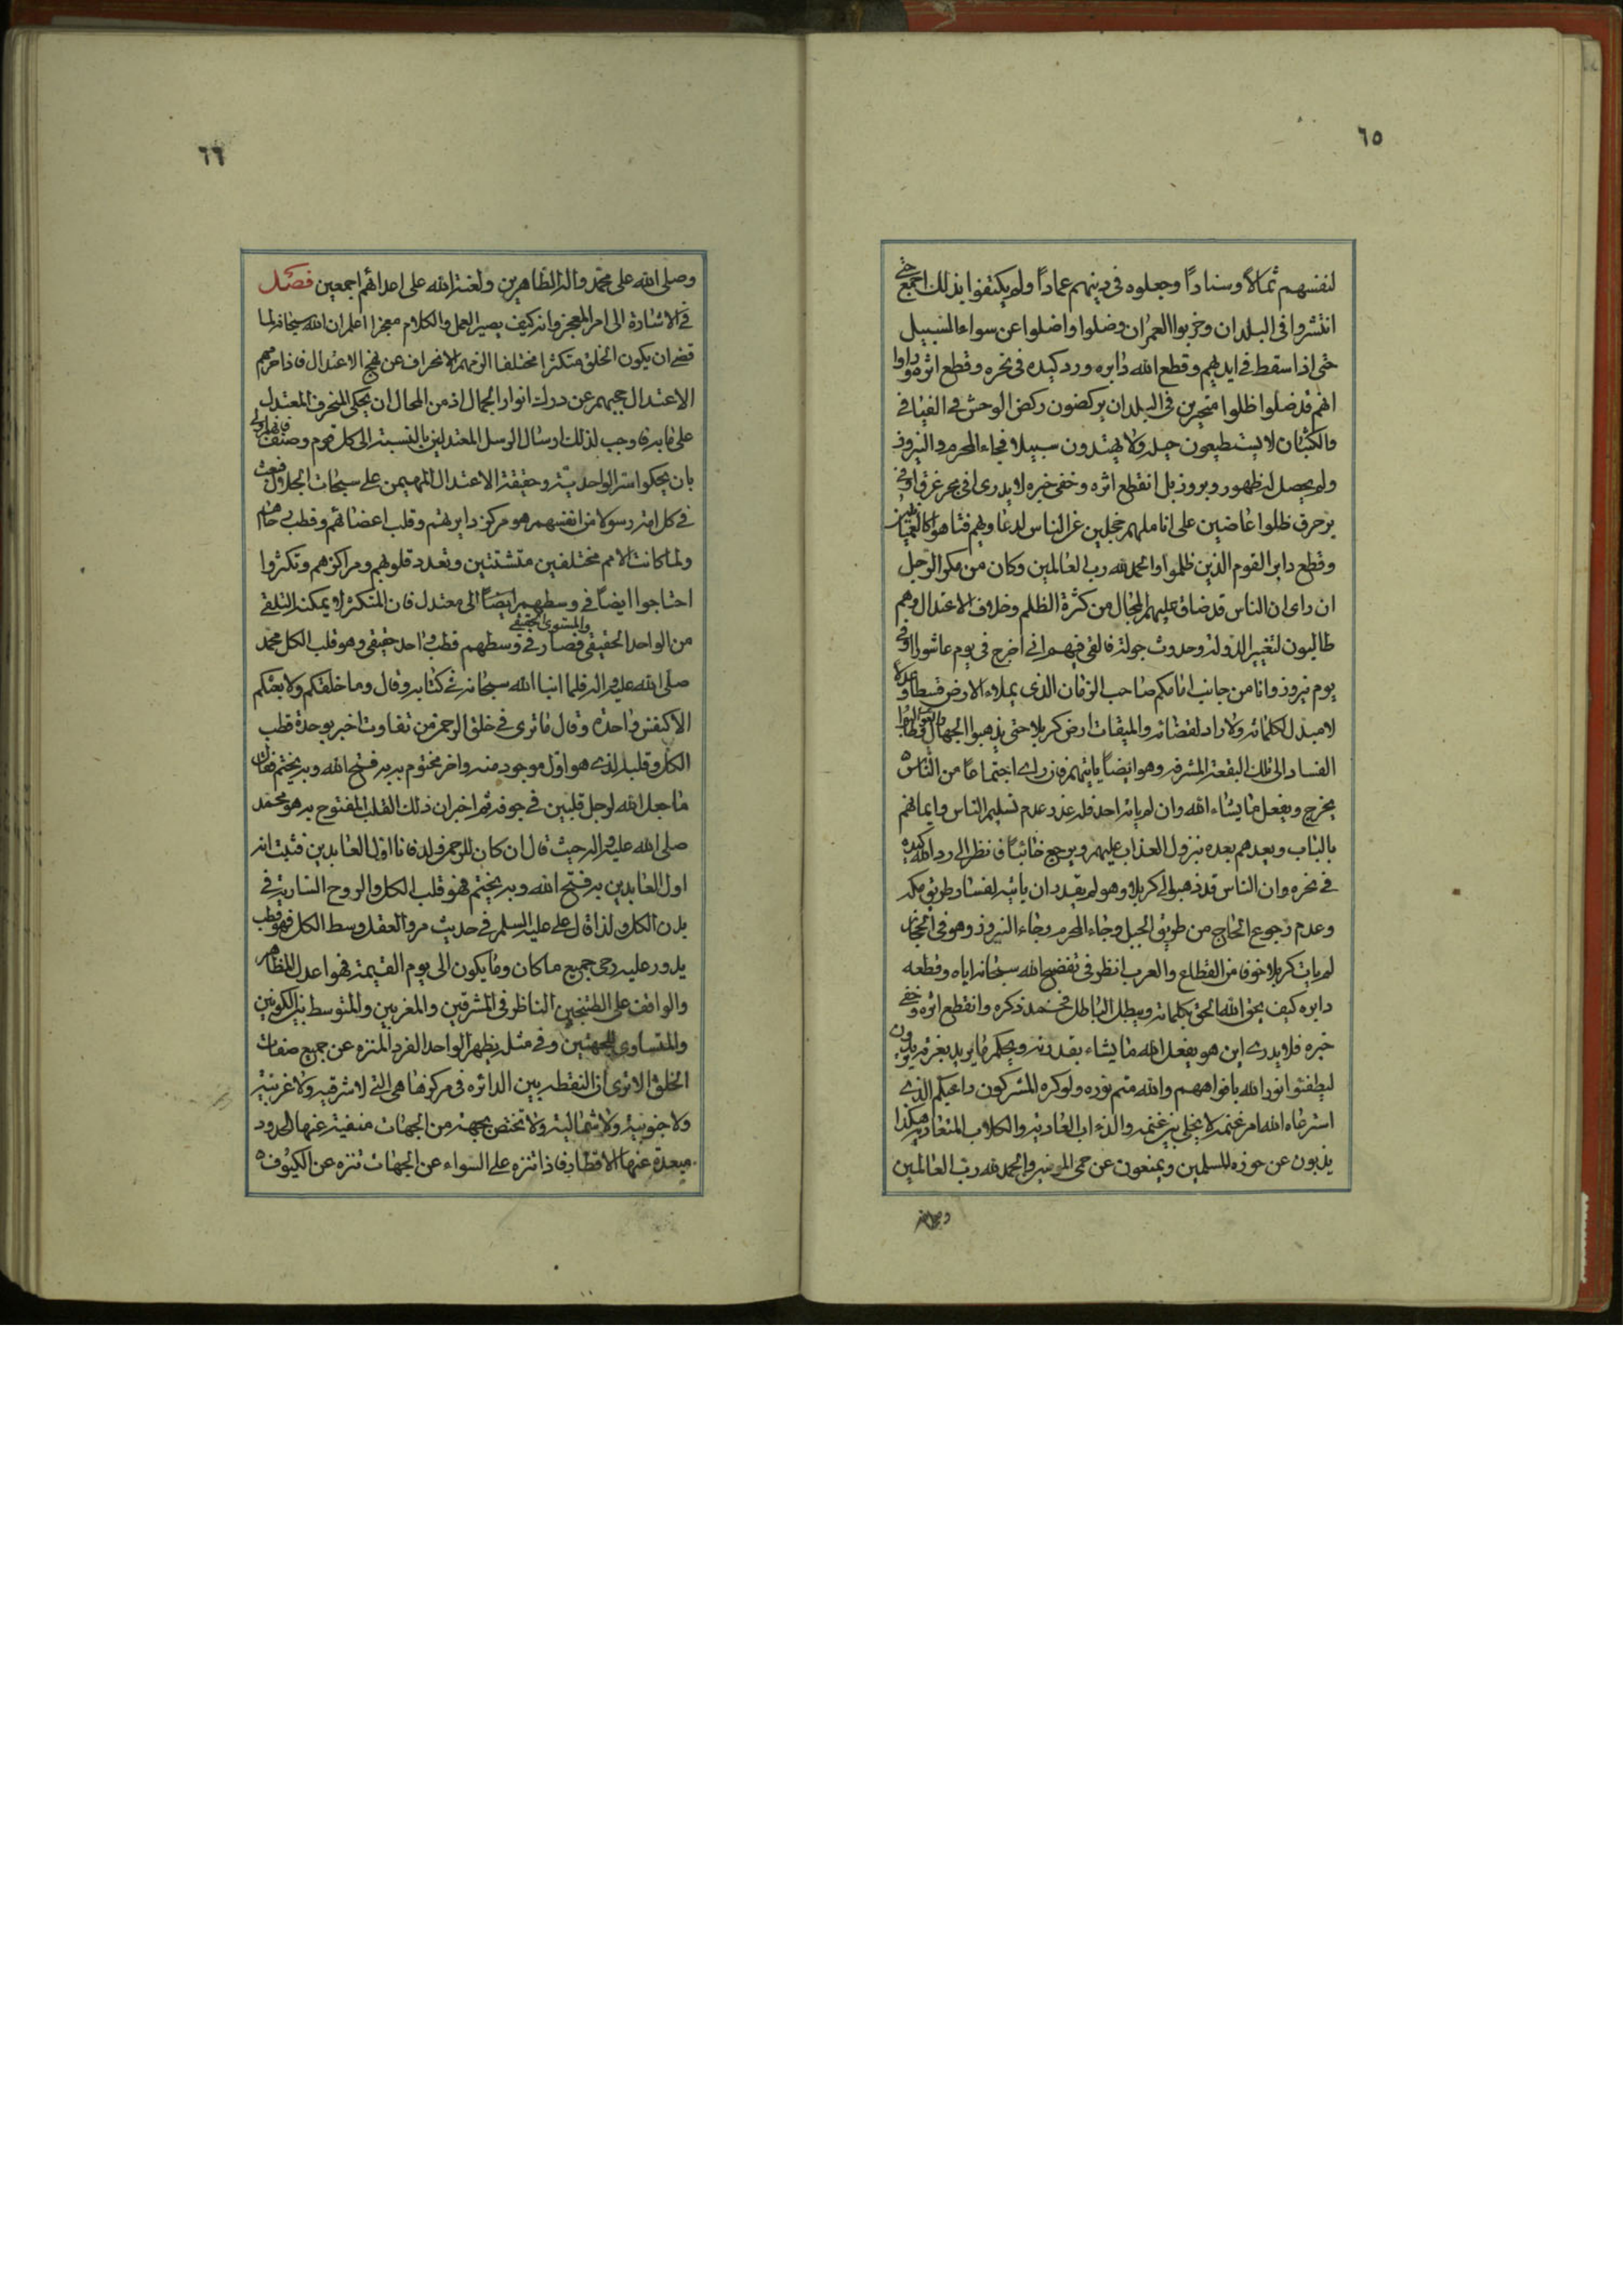 ٦٥
لنفسهم ثمالا وسنادا وجعلوه فى دينهم عمادا ولم يكتفوا بذلك اجمع حتى
انتشروا فى البلدان وخربوا العمران وضلوا واضلوا عن سواء السبيل
حتى اذا سقط فى ايديهم وقطع الله دابره ورد كيده فى نحره وقطع اثره وراوا
انهم قد ضلوا ظلوا متحيرين فى البلدان يركضون ركض الوحش فى الفيافى
والكثبان لا يستطيعون حيلة ولا يهتدون سبيلا فجاء المحرم والنيروز
ولم يحصل له ظهور وبروز بل انقطع اثره وخفى خبره لا يدرى افى بحر غرق او فى
بر حرق ظلوا عاضين على اناملهم خجلين عن الناس لدعاويهم فتاهوا كالعميان
وقطع دابر القوم الذين ظلموا والحمد لله رب العالمين وكان من مكر الرجل
ان راى ان الناس قد ضاق عليهم المجال من كثرة الظلم وخلاف الاعتدال وهم
طالبون لتغيير الدولة وحدوث جولة فالقى فيهم انى اخرج فى يوم عاشورا او فى
يوم نيروز وانا من جانب امامكم صاحب الزمان الذى يملاء الارض قسطا وعدلا
لا مبدل لكلماته ولا راد لقضائه والميقات ارض كربلا حتى يذهبوا الجهال
الفساد الى تلك البقعة المشرفة وهو ايضا ياتيهم فان راى اجتماعا من الناس
يخرج ويفعل ما يشاء الله وان لم ياته احد فله عذر عدم تسليم الناس وايمانهم
بالباب ويعدهم بعده بنزول العذاب عليهم ويرجع خائبا فانظر الى رد الله كيده
فى نحره وان الناس قد ذهبوا الى كربلا وهو لم يقدر ان ياتيه لفساد طريق مكه
وعدم رجوع الحاج من طريق الجبل وجاء المحرم وجاء النيروز وهو فى الحجاز
لم يات كربلا خوفا من القطاع والعرب انظر فى تفضيح الله سبحانه اياه وقطعه
دابره كيف يحق الله الحق بكلماته ويبطل الباطل فخمد ذكره وانقطع اثره وخفى
خبره فلا يدرى اين هو يفعل الله ما يشاء بقدرته ويحكم ما يريد بعزته يريدون
ليطفئوا نور الله بافواههم والله متم نوره ولو كره المشركون داعيكم الذى
استرعاه الله امر غنمه لا يخلى بين غنمه والذءاب العادية والكلاب المتعاوية هكذا
يذبون عن حوزه المسلمين ويمنعون عن حمى المؤمنين والحمد لله رب العالمين
٦٦
وصلى الله على محمد واله الطاهرين ولعنة الله على اعدائهم اجمعين فصل
فى الاشارة الى امر المعجز وانه كيف يصير العمل والكلام معجزا اعلم ان الله سبحانه لما
قضى ان يكون الخلق متكثرا مختلفا الزمهم الانحراف عن نهج الاعتدال فاذا حرمهم
الاعتدال حجبهم عن درك انوار الجمال اذ من المحال ان يحكى المنحرف المعتدل
على ما به فاوجب لذلك ارسال الرسل المعتدلين بالنسبة الى كل قوم وصنف
بان يحكوا سر الواحدية وحقيقة الاعتدال المهيمن على سبحات الجلال فبعث
فى كل امة رسولا من انفسهم هو مركز دايرتهم وقلب اعضائهم وقطب رحاهم
ولما كانت الامم مختلفين متشتتين وتعدد قلوبهم ومراكزهم وتكثروا
احتاجوا ايضا فى وسطهم ايضا الى معتدل فان المتكثر لا يمكنه التلقى
والمستوى الحقيقى
من الواحد الحقيقى فصار فى وسطهم قطب واحد حقيقى وهو قلب الكل محمد
صلى الله عليه واله فلما انبا الله سبحانه فى كتابه وقال وما خلقكم ولا بعثكم
الا كنفس واحدة وقال ما ترى فى خلق الرحمن من تفاوت اخبر بوحدة قطب
الكل وقلبه الذى هو اول موجود منه واخر مختوم به به فتح الله وبه يختم فقال
ما جعل الله لرجل قلبين فى جوفه ثم اخبر ان ذلك القلب المفتوح به هو محمد
صلى الله عليه واله حيث قال ان كان للرحمن ولد فانا اول العابدين فثبت انه
اول العابدين به فتح الله وبه يختم فهو قلب الكل والروح السارية فى
بدن الكل ولذا قال على عليه السلم فى حديث مر والعقل وسط الكل فهو قطب
يدور عليه رحى جميع ما كان وما يكون الى يوم القيمة فهو اعدل المظاهر
والواقف على الطتنجين الناظر فى المشرقين والمغربين والمتوسط بين الكونين
والمتساوى الجهتين وفى مثله يظهر الواحد الفرد المنزه عن جميع صفات
الخلق الا ترى ان النقطة بين الدائره فى مركزها هى التى لا شرقية ولا غربية
ولا جنوبية ولا شمالية ولا تختص بجهة من الجهات منفية عنها الحدود
مبعدة عنها الاقطار فاذا تنزه على السواء عن الجهات تنزه عن الكيوف